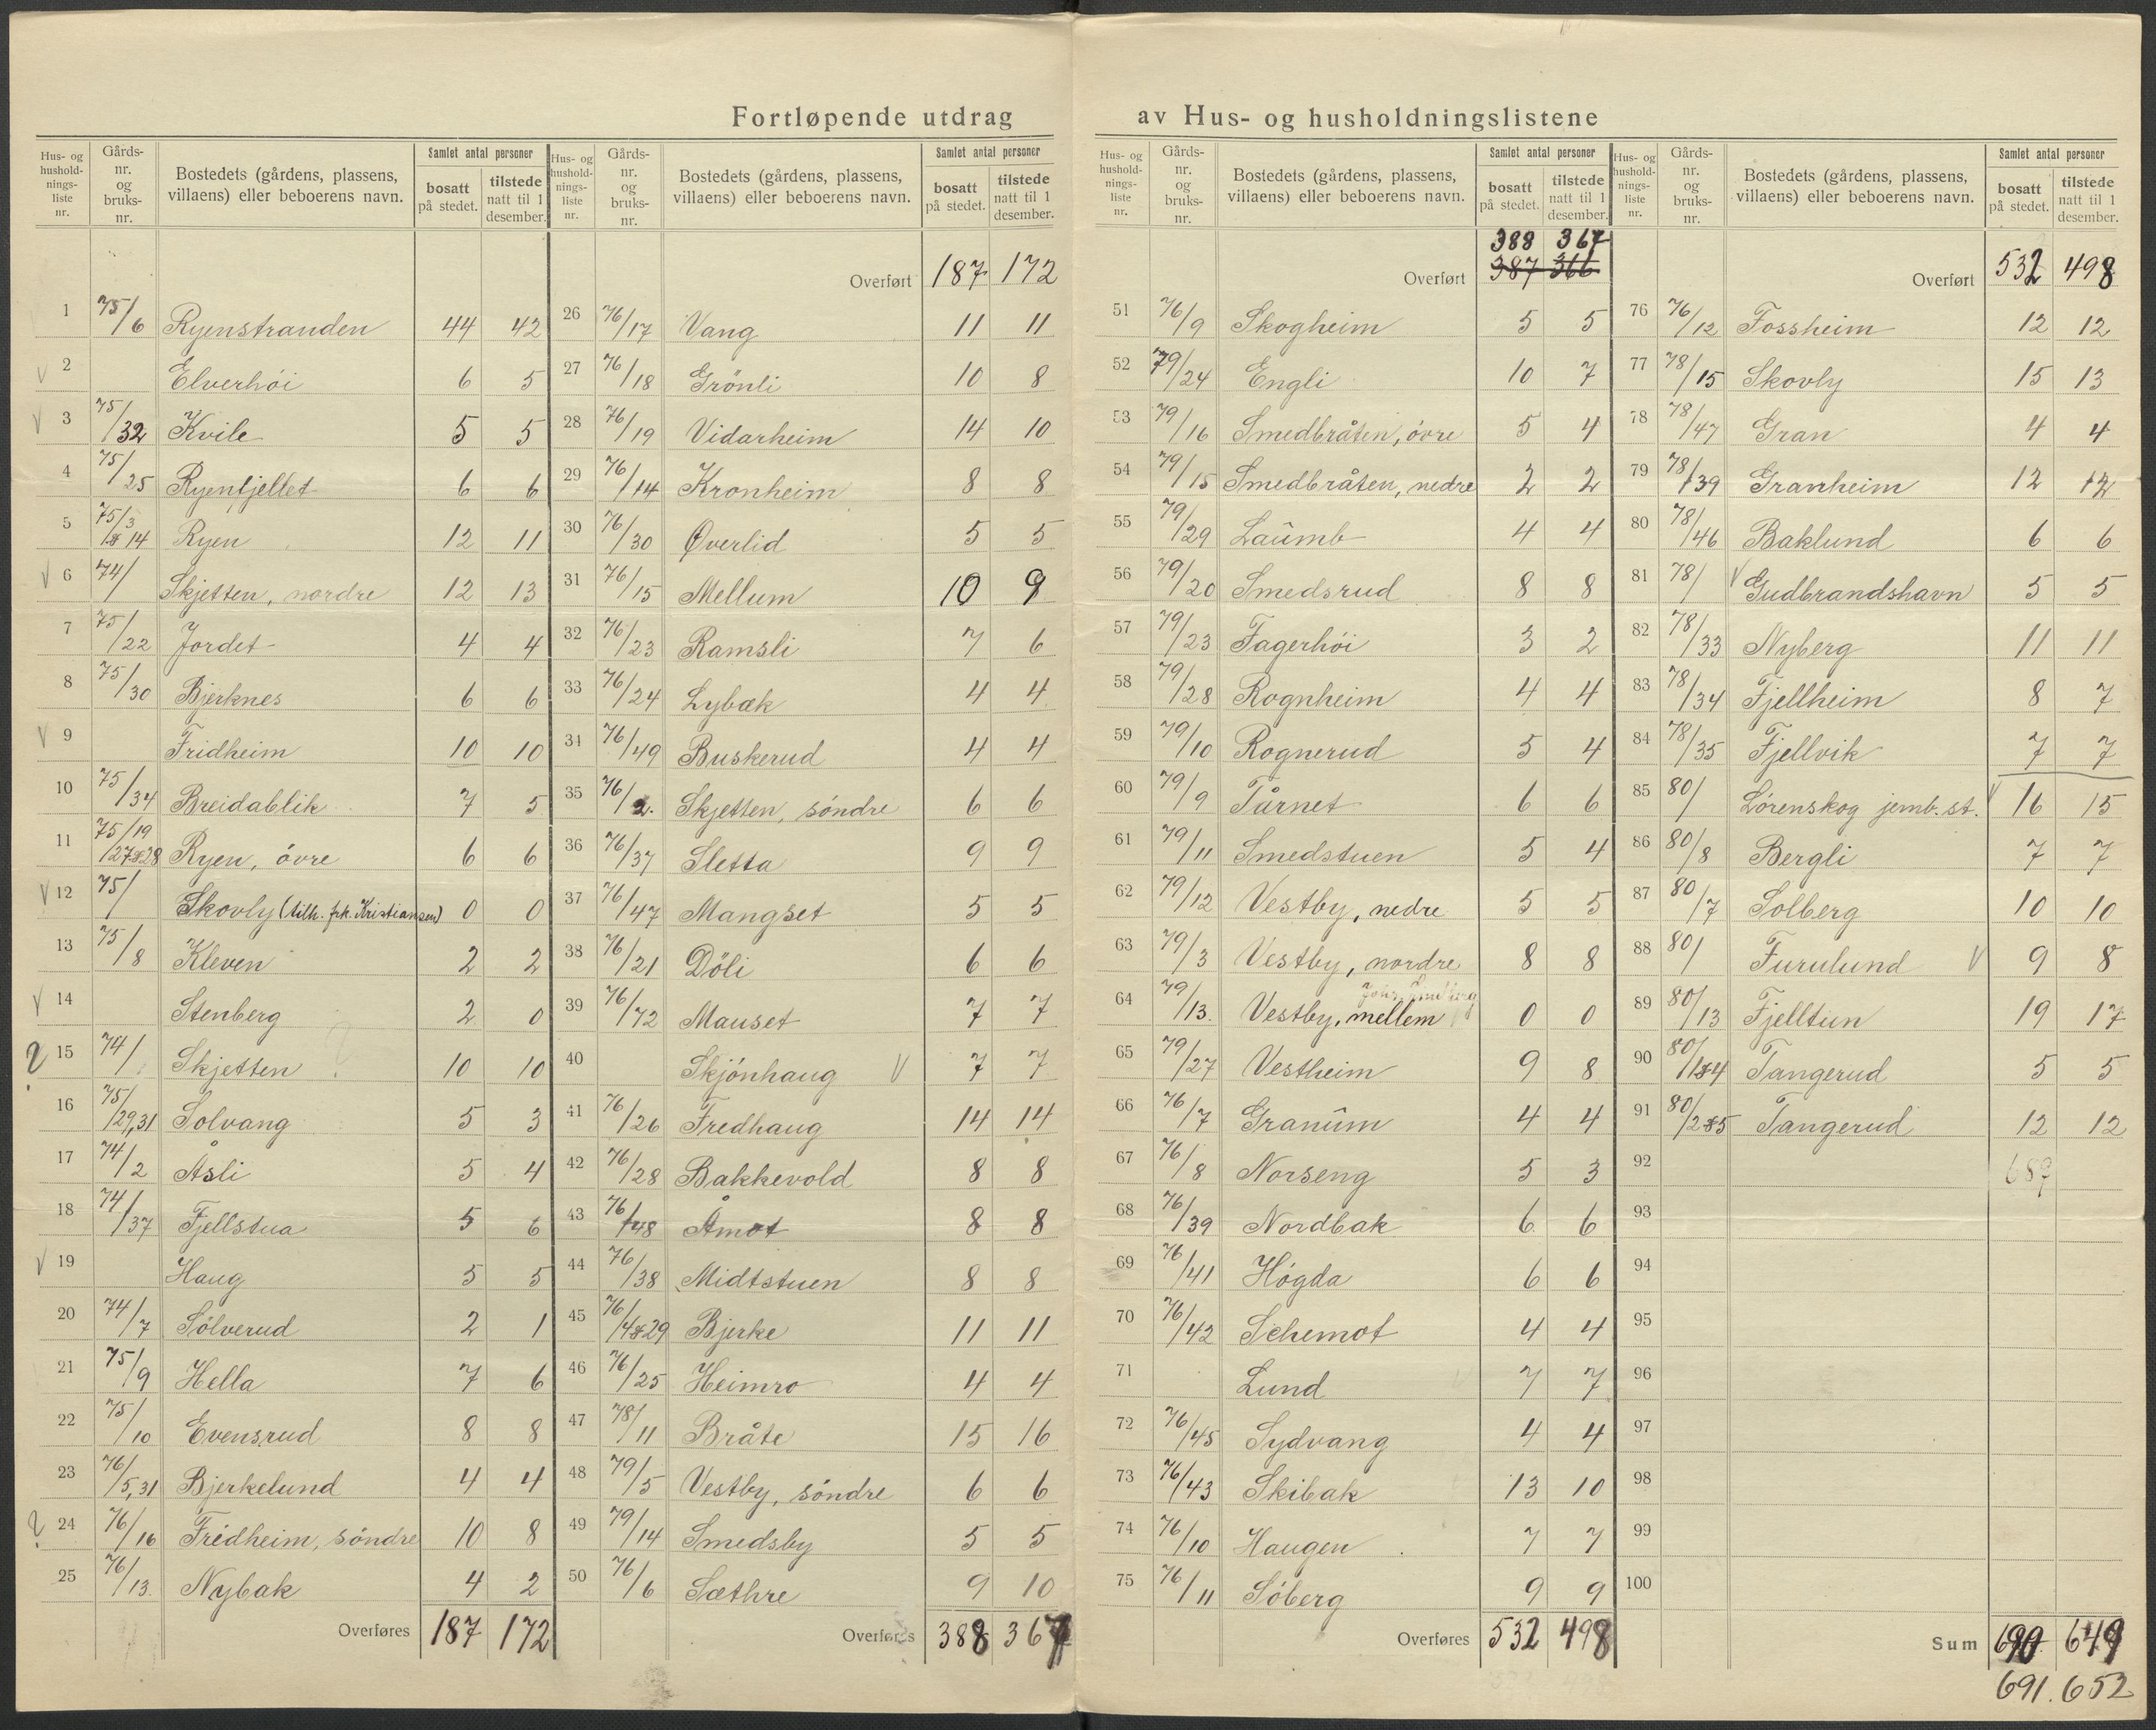 Fortløpende utdrag av Hus- og husholdningslistene
Hus- og hushold-nings-liste nr. | Gårds-nr. og bruks-nr. | Bostedets (gårdens, plassens, villaens) eller beboerens navn. | Samlet antal personer | bosatt på stedet. | tilstede natt til 1 desember.
1 75/6 Ryenstranden 44 42
2 Elverhöi 6 5
3 75/32 Kvile 5 5
4 75/25 Ryenfjellet 6 6
5 75/3 & 14 Ryen 12 11
6 74/ Skjetten, nordre 12 13
7 75/22 Jordet 4 4
8 75/30 Bjerknes 6 6
9 Fridheim 10 10
10 75/34 Breidablik 7 5
11 75/19 /27&28 Ryen, övre 6 6
12 75/ Skovly (tilh. frk. Kristiansen) 0 0
13 75/8 Kleven 2 2
14 Stenberg 2 0
? 15 74/ Skjetten ? 10 10
16 75/29,31 Solvang 5 3
17 74/2 Åsli 5 4
18 74/37 Fjellstua 5 6
19 Haug 5 5
20 74/7 Sölverud 2 1
21 75/9 Hella 7 6
22 75/10 Evensrud 8 8
23 76/5,31 Bjerkelund 4 4
? 24 76/16 Fridheim, söndre 10 8
25 76/13 Nybak 4 2
Overføres 187 172
Hus- og hushold-nings-liste nr. | Gårds-nr. og bruks-nr. | Bostedets (gårdens, plassens, villaens) eller beboerens navn. | Samlet antal personer | bosatt på stedet. | tilstede natt til 1 desember.
Overført 187 172
26 76/17 Vang 11 11
27 76/18 Grönli 10 8
28 76/19 Vidarheim 14 10
29 76/14 Kronheim 8 8
30 76/30 Øverlid 5 5
31 76/15 Mellum 10 9
32 76/23 Ramsli 7 6
33 76/24 Lybæk 4 4
34 76/49 Buskerud 4 4
35 76/2. Skjetten, söndre 6 6
36 76/37 Sletta 9 9
37 76/47 Mangset 5 5
38 76/21 Döli 6 6
39 76/72 Mauset 7 7
40 Skjönhaug 7 7
41 76/26 Fredhaug 14 14
42 76/28 Bakkevold 8 8
43 76/48 Åmot 8 8
44 76/38 Midtstuen 8 8
45 76/4&29 Bjerke 11 11
46 76/25 Heimro 4 4
47 78/11 Bråte 15 16
48 79/5 Vestby, söndre 6 6
49 79/14 Smedsby 5 5
50 76/6 Sæthre 9 10
Overføres 388 367
Hus- og hushold-nings-liste nr. | Gårds-nr. og bruks-nr. | Bostedets (gårdens, plassens, villaens) eller beboerens navn. | Samlet antal personer | bosatt på stedet. | tilstede natt til 1 desember.
388 367
Overført 387 366
51 76/9 Skogheim 5 5
52 79/24 Engli 10 7
53 79/16 Smedbråten, övre 5 4
54 79/15 Smedbråten, nedre 2 2
55 79/29 Laumb 4 4
56 79/20 Smedsrud 8 8
57 79/23 Fagerhöi 3 2
58 79/28 Rognheim 4 4
59 79/10 Rognerud 5 4
60 79/9 Tårnet 6 6
61 79/11 Smedstuen 5 4
62 79/12 Vestby, nedre 5 5
63 79/3 Vestby, nordre 8 8
64 79/13. Vestby, mellem 0 0
65 79/27 Vestheim 9 8
66 76/7 Granum 4 4
67 76/8 Norseng 5 3
68 76/39 Nordbak 6 6
69 76/41 Högda 6 6
70 76/42 Schemot 4 4
71 Lund 7 7
72 76/45 Sydvang 4 4
73 76/43 Skibak 13 10
74 76/10 Haugen 7 7
75 76/11 Söberg 9 9
Overføres 532 498
Hus- og hushold-nings-liste nr. | Gårds-nr. og bruks-nr. | Bostedets (gårdens, plassens, villaens) eller beboerens navn. | Samlet antal personer | bosatt på stedet. | tilstede natt til 1 desember.
Overført 532 498
76 76/12 Fossheim 12 12
77 78/15 Skovly 15 13
78 78/47 Gran 4 4
79 78/39 Granheim 12 12
80 78/46 Baklund 6 6
81 78/ Gudbrandshavn 5 5
82 78/33 Nyberg 11 11
83 78/34 Fjellheim 8 7
84 78/35 Fjellvik 7 7
85 80/ Lörenskog jernb. st. 16 15
86 80/8 Bergli 7 7
87 80/7 Solberg 10 10
88 80/ Furulund 9 8
89 80/13 Fjelltun 19 17
90 80/1&4 Tangerud 5 5
91 80/2&5 Tangerud 12 12
92 689
93
94
95
96
97
98
99
100
Sum 690 649
691. 652